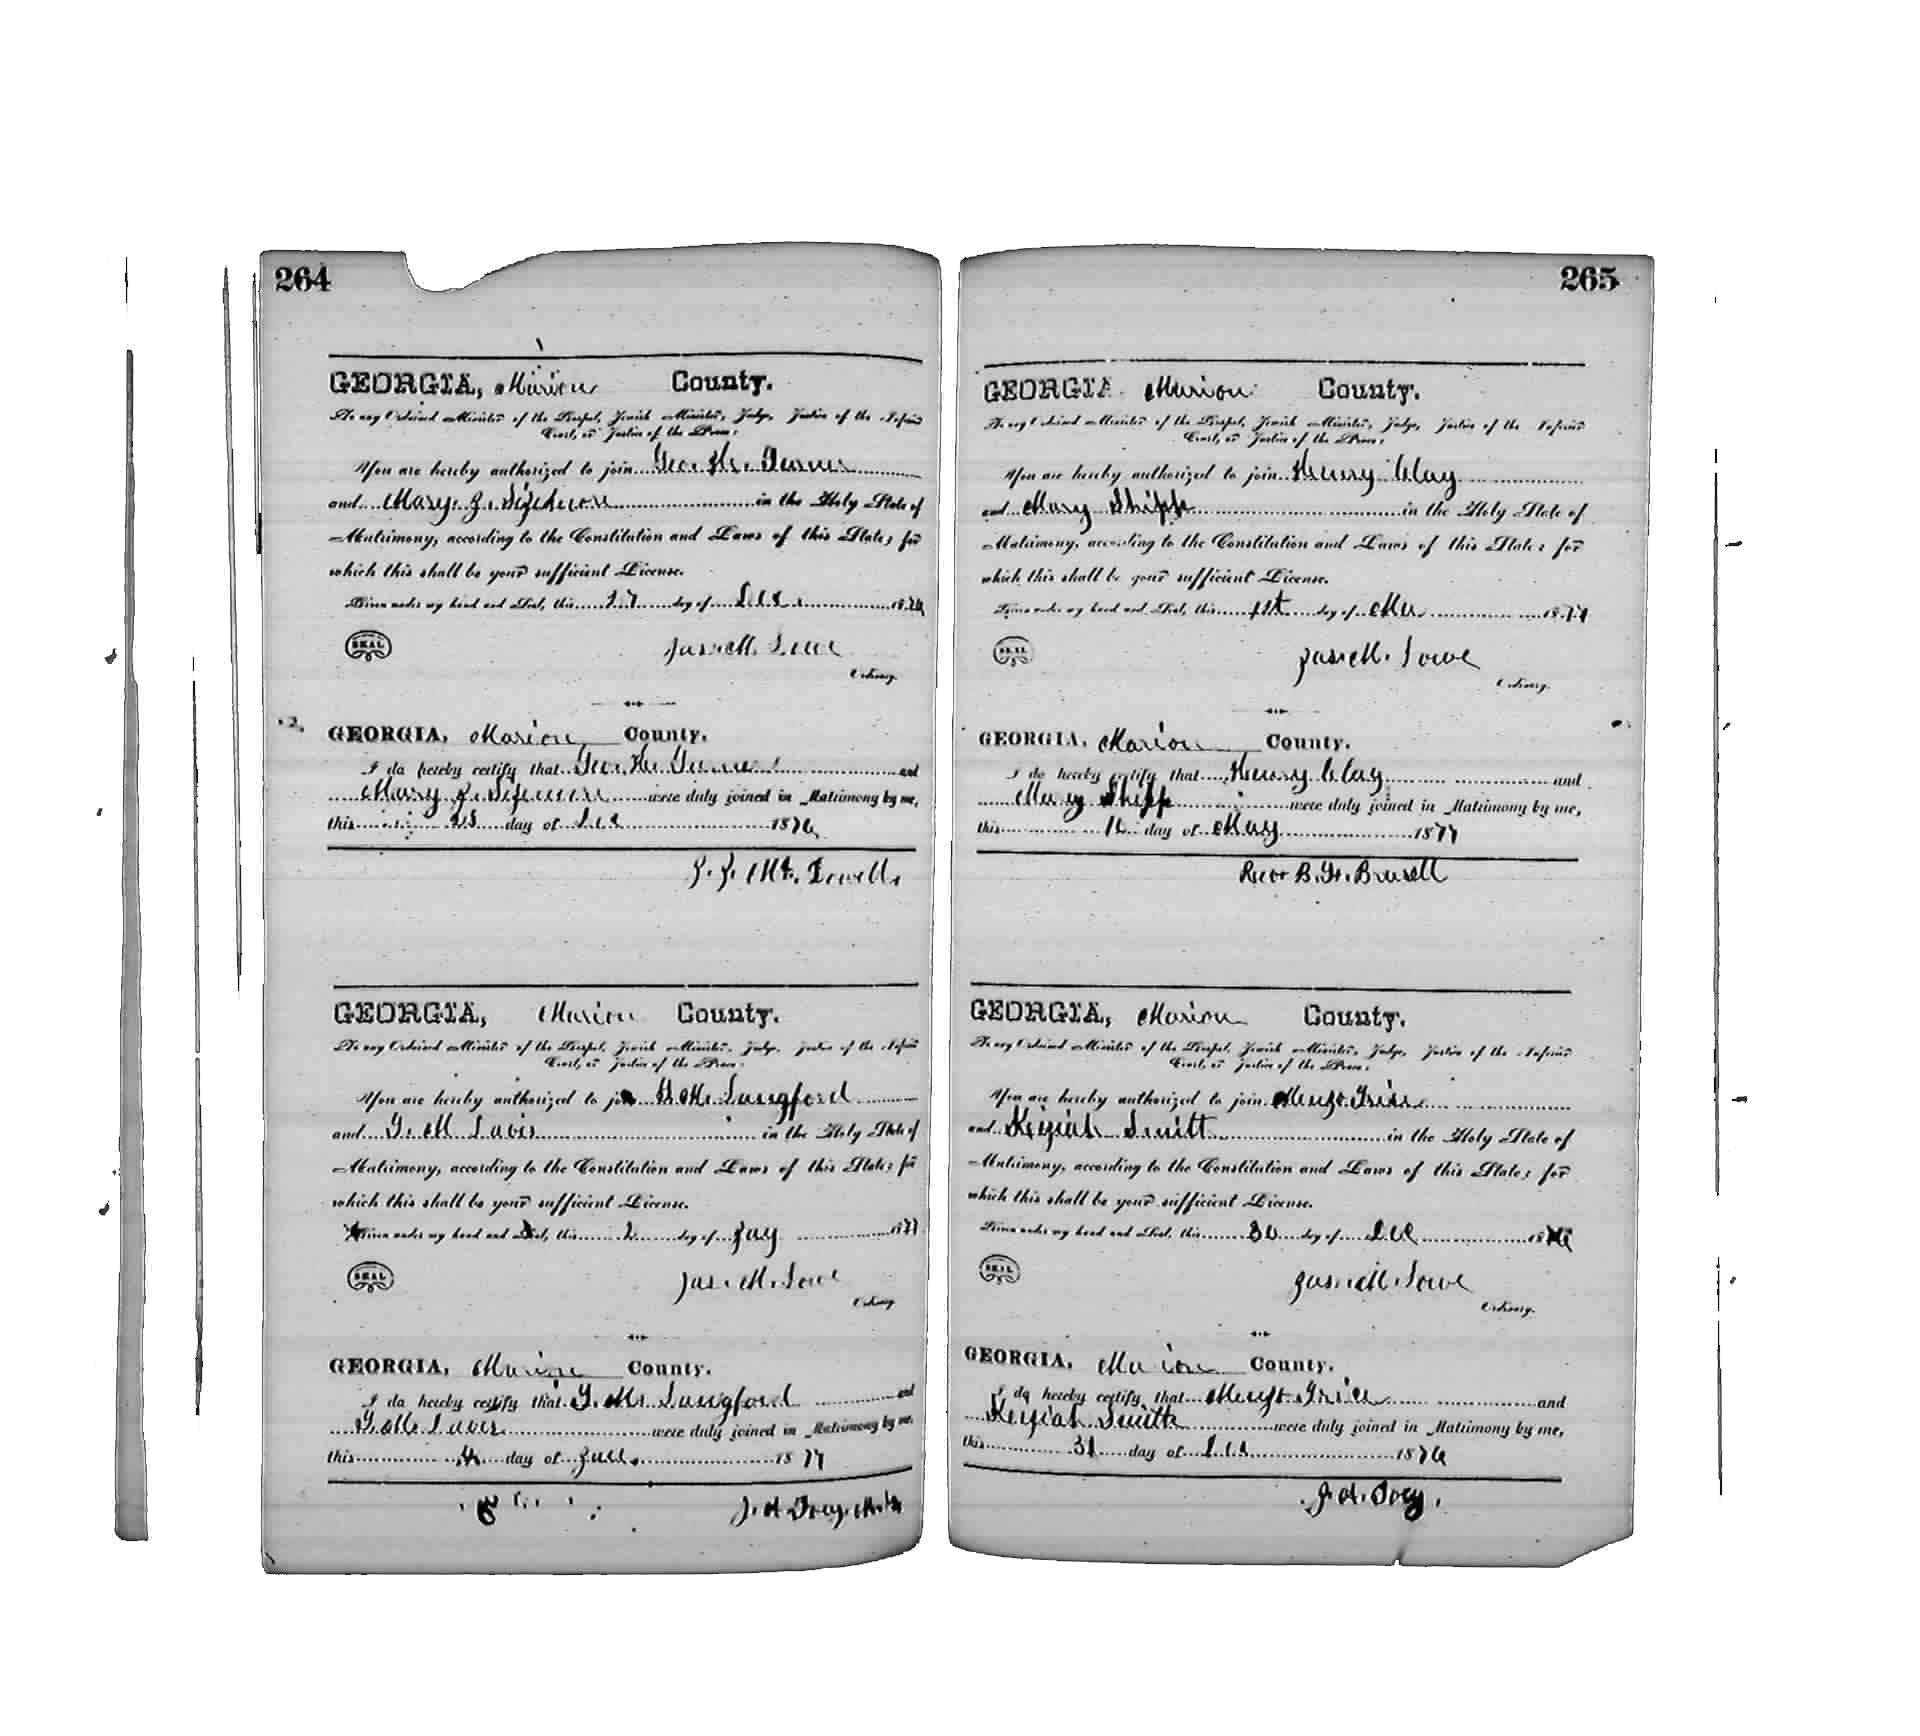 264
GEORGIA, Marion County.
To any Ordained Minister of the Gospel, Jewish Minister, Judge, Justice of the Inferior
Court, or Justice of the Peace:
You are hereby authorized to join Geo. H. Turner
and Mary J. in the Holy State of
Matrimony, according to the Constitution and Laws of this State; for
which this shall be your sufficient License.
Given under my hand and Seal, this 27 day of Dec. 1876
SEAL
Jas. M. Lowe
Ordinary.
GEORGIA, Marion County.
I do hereby certify that Geo. H. Turner and
Mary J. were duly joined in Matrimony by me,
this 28 day of Dec 1876
J. J. 
GEORGIA, Marion County.
To any Ordained Minister of the Gospel, Jewish Minister, Judge, Justice of the Inferior
Court, or Justice of the Peace:
You are hereby authorized to join Langford
and G. M Davis in the Holy State of
Matrimony, according to the Constitution and Laws of this State; for
which this shall be your sufficient License.
Given under my hand and Seal, this 2 day of 1877
SEAL
Jas. M. Lowe
Ordinary.
GEORGIA, Marion County.
I do hereby certify that G. M. Langford and
G. M. Davis were duly joined in Matrimony by me,
this 4 day of 1877
J. A. Ivey. M. G.
265
GEORGIA Marion County.
To any Ordained Minister of the Gospel, Jewish Minister, Judge, Justice of the Inferior
Court, or Justice of the Peace:
You are hereby authorized to join Henry Clay
and Mary Shipp in the Holy State of
Matrimony, according to the Constitution and Laws of this State; for
which this shall be your sufficient License.
Given under my hand and Seal, this 1st day of 1877
SEAL
Jas. M. Lowe
Ordinary.
GEORGIA, Marion County.
I do hereby certify that Henry Clay and
Mary Shipp were duly joined in Matrimony by me,
this day of May 1877
B.
GEORGIA, Marion County.
To any Ordained Minister of the Gospel, Jewish Minister, Judge, Justice of the Inferior
Court, or Justice of the Peace:
You are hereby authorized to join Mingo Grice
and Keziah Smith in the Holy State of
Matrimony, according to the Constitution and Laws of this State; for
which this shall be your sufficient License.
Given under my hand and Seal, this 30 day of Dec 1876
SEAL
Jas. M. Lowe
Ordinary.
GEORGIA, Marion County.
I do hereby certify that Mingo Grice and
Keziah Smith were duly joined in Matrimony by me,
this 31 day of Dec 1876
J. A. Ivey.